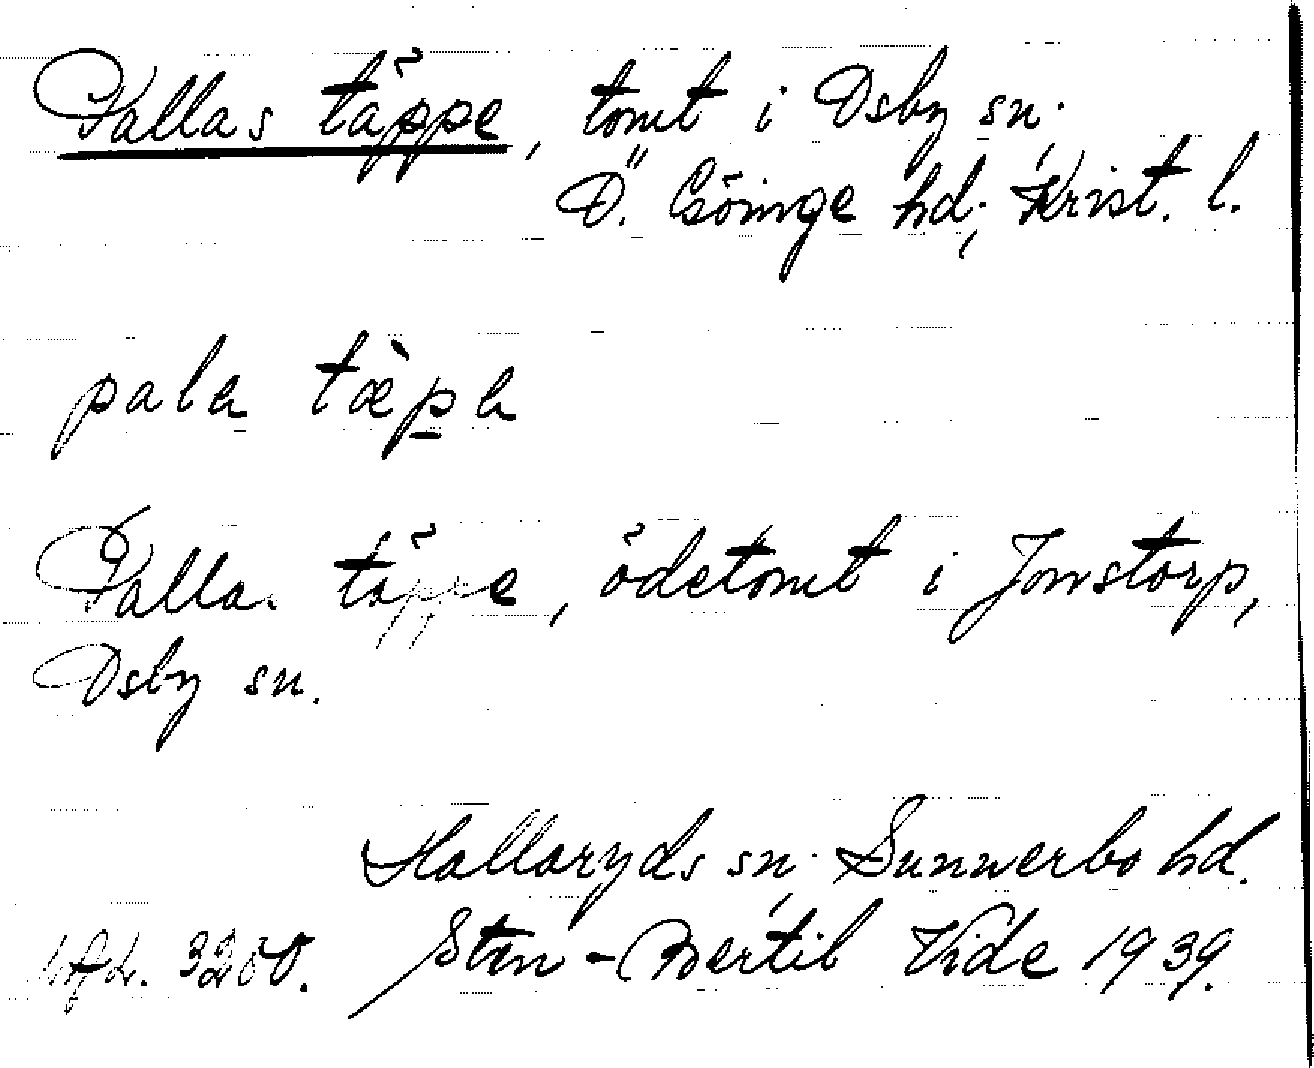 Pallas täppe, tomt i Osby sn;
Ö. Göinge hd; Krist. l.
pala tæ̀pa
Palla täppe, ödetomt i Jonstorp,
Osby sn.
Hallaryds sn; Sunnerbo hd.
3200. Sten-Bertil Vide 1939.